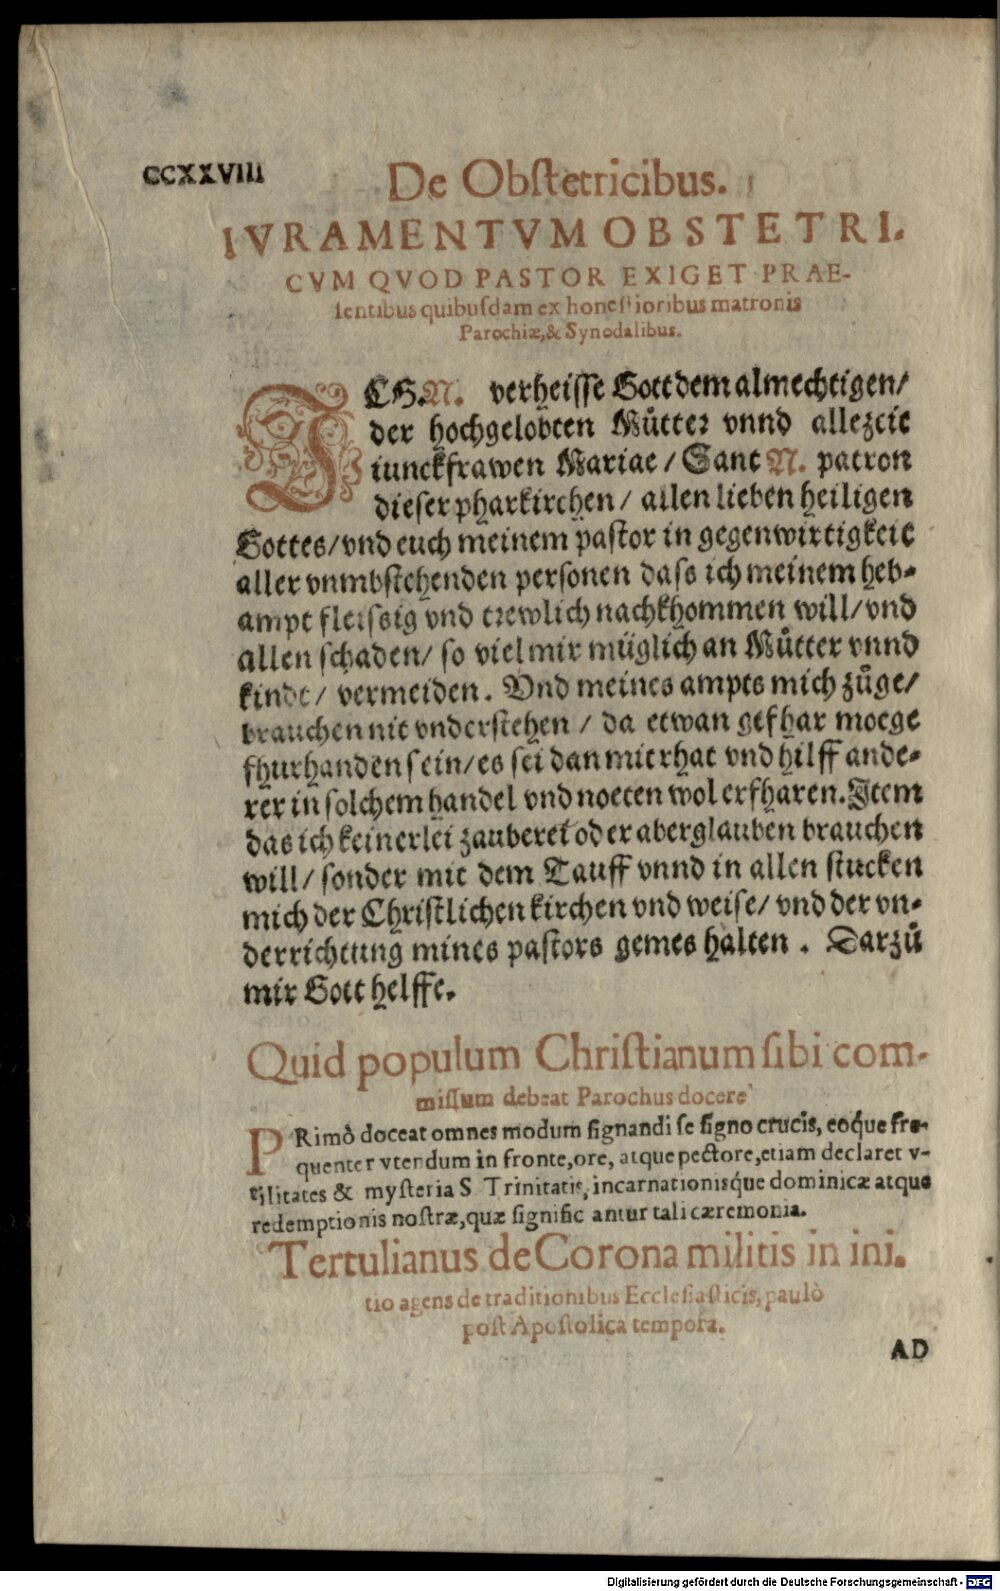 CCXXVIII
De Obſtetricibus.
IVRAMENTVM OBSTETRI.
CVM QVOD PASTOR EXIGET PRAE-
ſentibus quibuſdam ex honeſtioribus matronis
Parochiæ, & Synodalibus.
ICH. N. verheiſſe Gott dem almechtigen/
der hochgelobten Mütter vnnd allezeit
iunckfrawen Mariae / Sant N. patron
dieſer pharkirchen / allen lieben heiligen
Gottes/ vnd euch meinem paſtor in gegenwirtigkeit
aller vnmbſtehenden perſonen daſs ich meinem heb-
ampt fleiſsig vnd trewlich nachkhommen will/ vnd
allen ſchaden/ ſo viel mir müglich an Můtter vnnd
kindt/ vermeiden. Vnd meines ampts mich zůge/
brauchen nit vnderſtehen / da etwan gefhar moege
fhurhanden ſein/ es ſei dan mit rhat vnd hilff ande-
rer in ſolchem handel vnd noeten wol erfharen. Item
das ich keinerlei zauberei oder aberglauben brauchen
will/ ſonder mit dem Tauff vnnd in allen ſtucken
mich der Chriſtlichen kirchen vnd weiſe/ vnd der vn-
derrichtung mines paſtors gemes halten. Darzů
mir Gott helffe.
Quid populum Chriſtianum ſibi com-
miſſum debeat Parochus docere`
PRimò doceat omnes modum ſignandi ſe ſigno crucis, eoq́ue fre-
quenter vtendum in fronte, ore, atque pectore, etiam declaret v-
tilitates & myſteria S Trinitatis, incarnationisq́ue dominicæ atque
redemptionis noſtræ, quæ ſignific antur tali cæremonia.
Tertulianus de Corona militis in ini.
tio agens de traditionibus Eccleſiaſticis, paulò
poſt Apoſtolica tempora.
AD
Digitalisierung gefördert durch die Deutsche Forschungsgemeinschaft - DFG